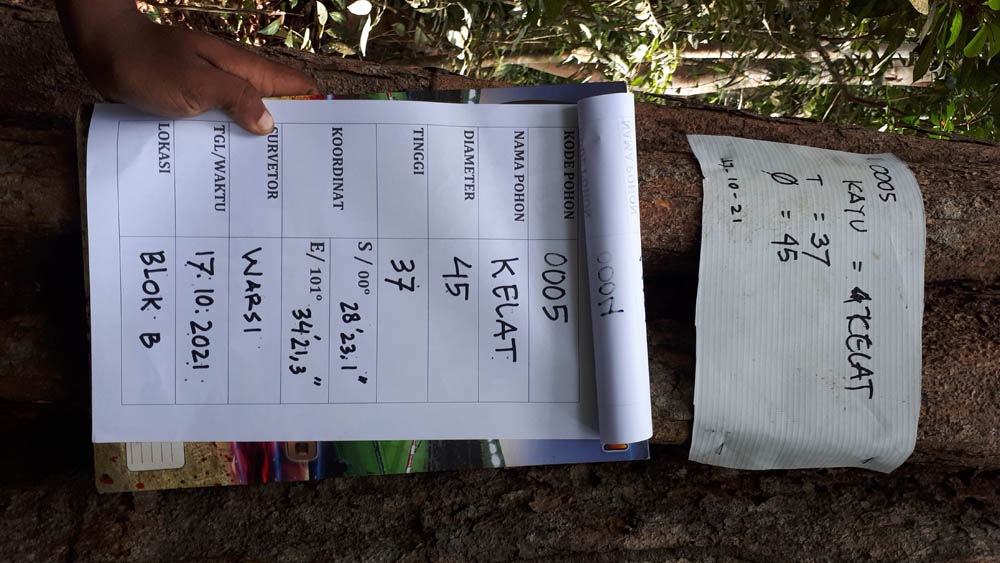 0005
KAYU = KELAT
T = 37
Ø = 45
17-10-21
KODE POHON 0005
NAMA POHON KELAT
DIAMETER 45
TINGGI 37
KOORDINAT
S / 00° 28'23,1"
E/ 101° 34'21,3"
SURVETOR WARSI
TGL/WAKTU 17.10.2021
LOKASI BLOK B